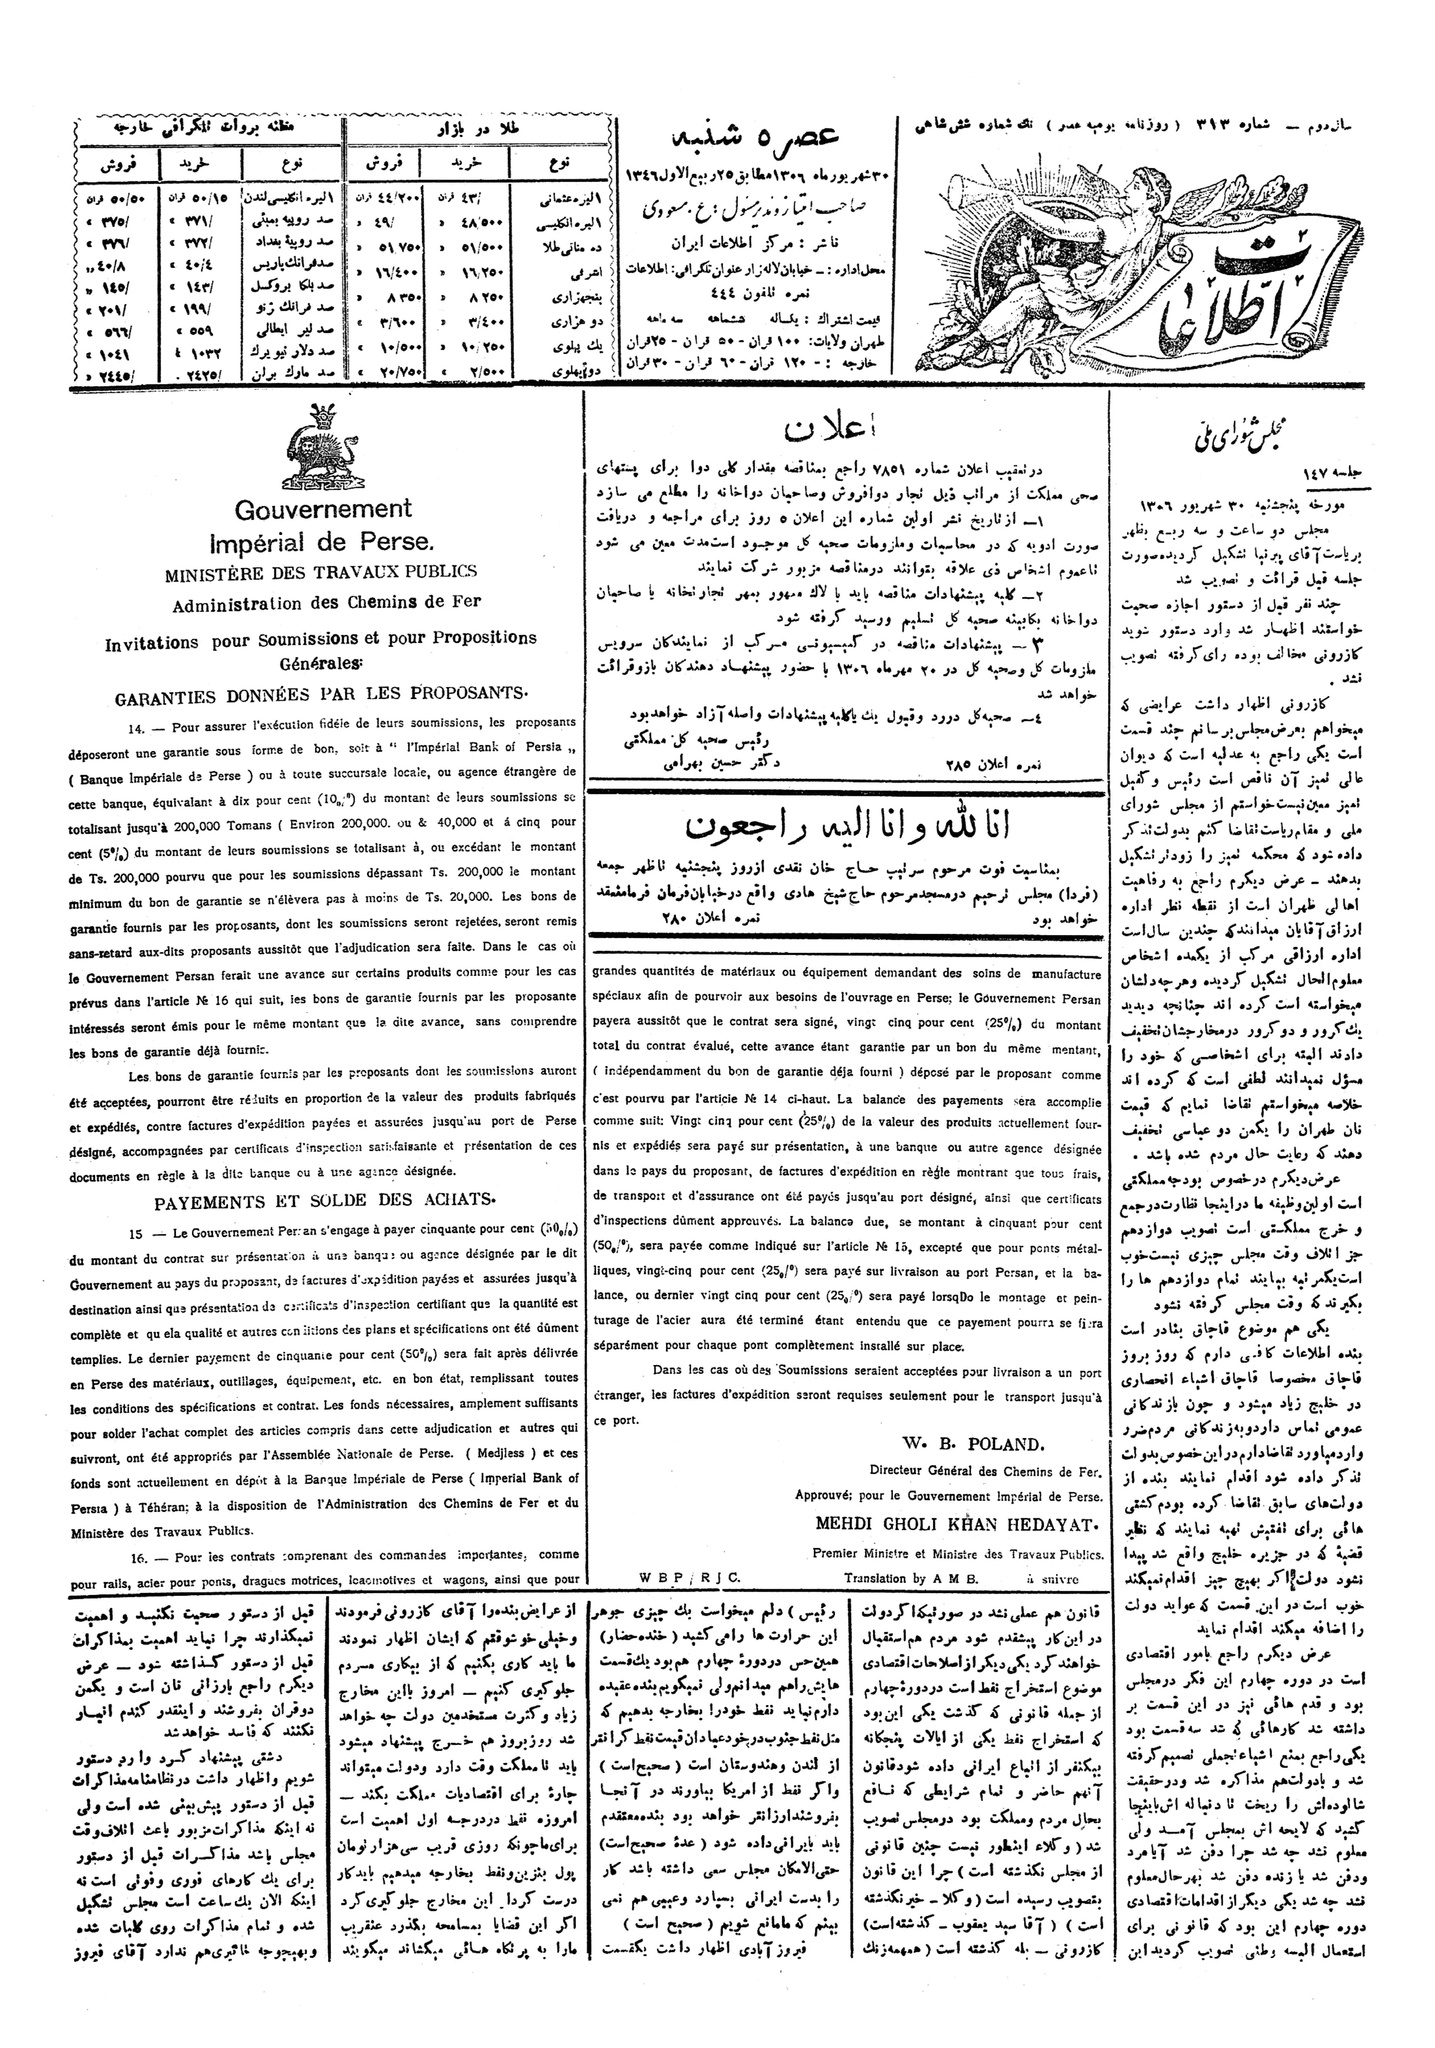 سال دوم — شماره ۳۱۳ ( روزنامه یومیه عصر ) تك شماره شش شاهی
اطلاعات
عصر ۵ شنبه
۳۰ شهریور ماه ۱۳۰۶ مطابق ۲۵ ربیع الاول ۱۳۴۶
صاحب امتیاز و مدیر مسئول : ع . مسعودی
ناشر : مرکز اطلاعات ایران
محل اداره : – خیابان لاله زار عنوان تلگرافی: اطلاعات
نمره تلفون ٤٤٤
قیمت اشتراك : یکساله ششماهه سه ماهه
طهران ولایات: ۱۰۰ قران – ۵۰ قران – ۲۵ قران
خارجه : – ۱۲۰ قران – ۶۰ قران – ۳۰ قران
طلا در بازار
نوع خرید فروش
۱ لیره عثمانی ٤۳/ قران ٤٤/۲۰۰ قران
۱ لیره انگلیسی ٤۸/۵۰۰ » ٤۹/ »
ده مناتی طلا ۵۱/۵۰۰ » ۵۱/۷۵۰ »
اشرفی ۱۶/۲۵۰ » ۱۶/٤۰۰ »
پنجهزاری ۸/۲۵۰ » ۸/۳۵۰ »
دو هزاری ۳/٤۰۰ » ۳/۶۰۰ »
یك پهلوی ۱۰/۲۵۰ » ۱۰/۵۰۰ »
دو پهلوی ۲/۵۰۰ » ۲۰/۷۵۰ »
مظنه بروات تلگرافی خارجه
نوع خرید فروش
۱ لیره انگلیسی لندن ۵۰/۱۵ قران ۵۰/۵۰ قران
صد روپیه بمبئی ۳۷۱/ » ۳۷۵/ »
صد روپیهٔ بغداد ۳۷۲/ » ۳۷۶/ »
صد فرانك پاریس ٤۰/٤ » ٤۰/۸ »
صد بلگا بروکسل ۱٤۳/ » ۱٤۵/ »
صد فرانك ژنو ۱۹۹/ » ۲۰۱/ »
صد لیر ایطالی ۵۵۹ » ۵۶۶/ »
صد دلار نیویرك ۱۰۳۲ » ۱۰٤۱ »
صد مارك برلن ۲٤۲۵/ ۲٤٤۵/ »
مجلس شورای ملی
جلسه ۱٤۷
مورخه پنجشنبه ۳۰ شهریور ۱۳۰۶
مجلس دو ساعت و سه ربع بظهر
بریاست آقای پیرنیا تشکیل گردیده صورت
جلسه قبل قرائت و تصویب شد
چند نفر قبل از دستور اجازه صحبت
خواستند اظهار شد وارد دستور شوید
کازرونی مخالف بوده رای گرفته تصویب
نشد .
کازرونی اظهار داشت عرایضی که
میخواهم بعرض مجلس برسانم چند قسمت
است یکی راجع به عدلیه است که دیوان
عالی تمیز آن ناقص است رئیس و کفیل
تمیز معین نیست خواستم از مجلس شورای
ملی و مقام ریاست تقاضا کنم بدولت تذکر
داده شود که محکمه تمیز را زودتر تشکیل
بدهند – عرض دیگرم راجع به رفاهیت
اهالی طهران است از نقطه نظر اداره
ارزاق آقایان میدانند که چندین سال است
اداره ارزاقی مرکب از یکعده اشخاص
معلوم الحال تشکیل گردیده و هر چه دلشان
میخواسته است کرده اند چنانچه دیدید
یك کرور و دو کرور در مخارجشان تخفیف
دادند البته برای اشخاصی که خود را
مسؤل نمیدانند لطفی است که کرده اند
خلاصه میخواستم تقاضا نمایم که قیمت
نان طهران را یکمن دو عباسی تخفیف
دهند که رعایت حال مردم شده باشد .
عرض دیگرم در خصوص بودجه مملکتی
است اولین وظیفه ما در اینجا نظارت در جمع
و خرج مملکتی است تصویب دوازدهم
جز اتلاف وقت مجلس چیزی نیست خوب
است یکمرتبه بیایند تمام دوازدهم ها را
بگیرند که وقت مجلس گرفته نشود
یکی هم موضوع قاچاق بنادر است
بنده اطلاعات کافی دارم که روز بروز
قاچاق مخصوصا قاچاق اشیاء انحصاری
در خلیج زیاد میشود و چون بازندگانی
عمومی تماس دارد و به زندگانی مردم ضرر
وارد میاورد تقاضا دارم در این خصوص بدولت
تذکر داده شود اقدام نمایند بنده از
دولت‌های سابق تقاضا کرده بودم کشتی
هائی برای تفتیش تهیه نمایند که نظیر
قضیهٔ که در جزیره خلیج واقع شد پیدا
نشود دولت اگر بهیچ چیز اقدام نمیکند
خوب است در این قسمت که عواید دولت
را اضافه میکند اقدام نماید
عرض دیگرم راجع بامور اقتصادی
است در دوره چهارم این فکر در مجلس
بود و قدم هائی نیز در این قسمت بر
داشته شد کارهائی که شد سه قسمت بود
یکی راجع بمنع اشیاء تجملی تصمیم گرفته
شد و با دولت هم مذاکره شد و در حقیقت
شالوده‌اش را ریخت تا دنباله اش باینجا
کشید که لایحه اش بمجلس آمد ولی
معلوم نشد چه شد چرا دفن شد آیا مرد
و دفن شد یا زنده دفن شد بهر حال معلوم
نشد چه شد یکی دیگر از اقدامات اقتصادی
دوره چهارم این بود که قانونی برای
استعمال البسه وطنی تصویب گردید این
اعلان
در تعقیب اعلان شماره ۷۸۵۱ راجع بمناقصه مقدار کلی دوا برای پستهای
صحی مملکت از مراتب ذیل تجار دوافروش و صاحبان دواخانه را مطلع می سازد
۱ – از تاریخ نشر اولین شماره این اعلان ۵ روز برای مراجعه و دریافت
صورت ادویه که در محاسبات و ملزومات صحیه کل موجود است مدت معین می شود
تا عموم اشخاص ذی علاقه بتوانند در مناقصه مزبور شرکت نمایند
۲ – کلیه پیشنهادات مناقصه باید با لاك ممهور بمهر تجارتخانه یا صاحبان
دواخانه بکابینه صحیه کل تسلیم و رسید گرفته شود
۳ – پیشنهادات مناقصه در کمیسیونی مرکب از نمایندگان سرویس
ملزومات کل و صحیه کل در ۲۰ مهرماه ۱۳۰۶ با حضور پیشنهاد دهندگان باز و قرائت
خواهد شد
٤ – صحیه کل در رد و قبول یك یا کلیه پیشنهادات واصله آزاد خواهد بود
رئیس صحیه کل مملکتی
نمره اعلان ۲۸۵ دکتر حسین بهرامی
انا لله و انا الیه راجعون
بمناسبت فوت مرحوم سرتیپ حاج خان نقدی از روز پنجشنبه تا ظهر جمعه
(فردا) مجلس ترحیم در مسجد مرحوم حاج شیخ هادی واقع در خیابان فرمانفرما منعقد
خواهد بود نمره اعلان ۲۸۰
Gouvernement
Impérial de Perse.
MINISTÈRE DES TRAVAUX PUBLICS
Administration des Chemins de Fer
Invitations pour Soumissions et pour Propositions
Générales:
GARANTIES DONNÉES PAR LES PROPOSANTS.
14. — Pour assurer l'exécution fidéle de leurs soumissions, les proposants
déposeront une garantie sous forme de bon, soit à “ l'Impérial Bank of Persia „
( Banque Impériale de Perse ) ou à toute succursale locale, ou agence étrangère de
cette banque, équivalant à dix pour cent (10%) du montant de leurs soumissions se
totalisant jusqu'à 200,000 Tomans ( Environ 200,000. ou & 40,000 et á cinq pour
cent (5%) du montant de leurs soumissions se totalisant à, ou excédant le montant
de Ts. 200,000 pourvu que pour les soumissions dépassant Ts. 200,000 le montant
minimum du bon de garantie se n'élèvera pas à moins de Ts. 20,000. Les bons de
garantie fournis par les proposants, dont les soumissions seront rejetées, seront remis
sans-retard aux-dits proposants aussitôt que l'adjudication sera faite. Dans le cas où
le Gouvernement Persan ferait une avance sur certains produits comme pour les cas
prévus dans l'article № 16 qui suit, les bons de garantie fournis par les proposante
intéressés seront émis pour le même montant que la dite avance, sans comprendre
les bons de garantie déjà fournis.
Les bons de garantie fournis par les proposants dont les soumissions auront
été acceptées, pourront être réduits en proportion de la valeur des produits fabriqués
et expédiés, contre factures d'expédition payées et assurées jusqu'au port de Perse
désigné, accompagnées par certificats d'inspection satisfaisante et présentation de ces
documents en règle à la dite banque ou à une agence désignée.
PAYEMENTS ET SOLDE DES ACHATS.
15 — Le Gouvernement Persan s'engage à payer cinquante pour cent (50%)
du montant du contrat sur présentation à une banque ou agence désignée par le dit
Gouvernement au pays du proposant, de factures d'expédition payées et assurées jusqu'à
destination ainsi que présentation de certificats d'inspection certifiant que la quantité est
complète et qu ela qualité et autres conditions des plans et spécifications ont été dûment
templies. Le dernier payement de cinquante pour cent (50%) sera fait après délivrée
en Perse des matériaux, outillages, équipement, etc. en bon état, remplissant toutes
les conditions des spécifications et contrat. Les fonds nécessaires, amplement suffisants
pour solder l'achat complet des articles compris dans cette adjudication et autres qui
suivront, ont été appropriés par l'Assemblée Nationale de Perse. ( Medjless ) et ces
fonds sont actuellement en dépôt à la Banque Impériale de Perse ( Imperial Bank of
Persia ) à Téhéran; à la disposition de l'Administration des Chemins de Fer et du
Ministère des Travaux Publics.
16. — Pour les contrats comprenant des commandes importantes, comme
pour rails, acier pour ponts, dragues motrices, locomotives et wagons, ainsi que pour
grandes quantités de matériaux ou équipement demandant des soins de manufacture
spéciaux afin de pourvoir aux besoins de l'ouvrage en Perse; le Gouvernement Persan
payera aussitôt que le contrat sera signé, vingt cinq pour cent (25%) du montant
total du contrat évalué, cette avance étant garantie par un bon du même mentant,
( indépendamment du bon de garantie déja fourni ) déposé par le proposant comme
c'est pourvu par l'article № 14 ci-haut. La balance des payements sera accomplie
comme suit: Vingt cinq pour cent (25%) de la valeur des produits actuellement four-
nis et expédiés sera payé sur présentation, à une banque ou autre agence désignée
dans le pays du proposant, de factures d'expédition en règle montrant que tous frais,
de transport et d'assurance ont été payés jusqu'au port désigné, ainsi que certificats
d'inspections dûment approuvés. La balance due, se montant à cinquant pour cent
(50%), sera payée comme indiqué sur l'article № 15, excepté que pour ponts métal-
liques, vingt-cinq pour cent (25%) sera payé sur livraison au port Persan, et la ba-
lance, ou dernier vingt cinq pour cent (25%) sera payé lorsqDo le montage et pein-
turage de l'acier aura été terminé étant entendu que ce payement pourra se fiera
séparément pour chaque pont complètement installé sur place.
Dans les cas où des Soumissions seraient acceptées pour livraison a un port
étranger, les factures d'expédition seront requises seulement pour le transport jusqu'à
ce port.
W. B. POLAND.
Directeur Général des Chemins de Fer.
Approuvé; pour le Gouvernement Impérial de Perse.
MEHDI GHOLI KHAN HEDAYAT.
Premier Ministre et Ministre des Travaux Publics.
W B P / R J C. Translation by A M B. à suivre
قانون هم عملی نشد در صورتیکه اگر دولت
در این کار پیشقدم شود مردم هم استقبال
خواهند کرد یکی دیگر از اصلاحات اقتصادی
موضوع استخراج نفط است در دورهٔ چهارم
از جمله قانونی که گذشت یکی این بود
که استخراج نفط یکی از ایالات پنجگانه
بیکنفر از اتباع ایرانی داده شود قانون
آنهم حاضر و تمام شرایطی که نافع
بحال مردم و مملکت بود در مجلس تصویب
شد ( وکلاء اینطور نیست چنین قانونی
از مجلس نگذشته است ) چرا این قانون
بتصویب رسیده است ( وکلا – خیر نگذشته
است ) ( آقا سید یعقوب – گذشته است)
کازرونی – بله گذشته است ( همهمه زنك
رئیس ) دلم میخواست یك چیزی جوهر
این حرارت ها را می کشید ( خنده حضار )
همین حس در دورهٔ چهارم هم بود یك قسمت
هایش را هم میدانم ولی نمیگویم بنده عقیده
دارم نباید نفط خود را بخارجه بدهیم که
مثل نفط جنوب در خود عبادان قیمت نفط گرانتر
از لندن و هندوستان است ( صحیح است )
و اگر نفط از امریکا بیاورند در آنجا
بفروشند ارزانتر خواهد بود بنده معتقدم
باید بایرانی داده شود ( عدهٔ صحیح است )
حتی الامکان مجلس سعی داشته باشد کار
را بدست ایرانی بسپارد و عیبی هم نمی
بینم که ما مانع شویم ( صحیح است )
فیروز آبادی اظهار داشت یکقسمت
از عرایض بنده را آقای کازرونی فرمودند
و خیلی خوشوقتم که ایشان اظهار نمودند
ما باید کاری بکنیم که از بیکاری مردم
جلوگیری کنیم – امروز با این مخارج
زیاد و کثرت مستخدمین دولت چه خواهد
شد روز بروز هم خرج پیشنهاد میشود
باید تا مملکت وقت دارد و دولت میتواند
چارهٔ برای اقتصادیات مملکت بکند –
امروزه نفط در درجه اول اهمیت است
برای ما چونکه روزی قریب سی هزار تومان
پول بنزین و نفط بخارجه میدهیم باید کار
درست کرد از این مخارج جلوگیری کرد
اگر این قضایا بمسامحه بگذرد عنقریب
ما را به پرتگاه هائی میکشاند میگویند
قبل از دستور صحبت نکنید و اهمیت
نمیگذارند چرا نباید اهمیت بمذاکرات
قبل از دستور گذاشته شود – عرض
دیگرم راجع بارزانی نان است و یکمن
دوقران بفروشند و اینقدر گندم انبار
نکنند که فاسد خواهد شد
دشتی پیشنهاد کرد وارد دستور
شویم و اظهار داشت در نظامنامه مذاکرات
قبل از دستور پیش بینی شده است ولی
نه اینکه مذاکرات مزبور باعث اتلاف وقت
مجلس باشد مذاکرات قبل از دستور
برای یك کارهای فوری و فوتی است نه
اینکه الان یك ساعت است مجلس تشکیل
شده و تمام مذاکرات روی کلیات شده
و بهیچوجه تاثیری هم ندارد آقای فیروز